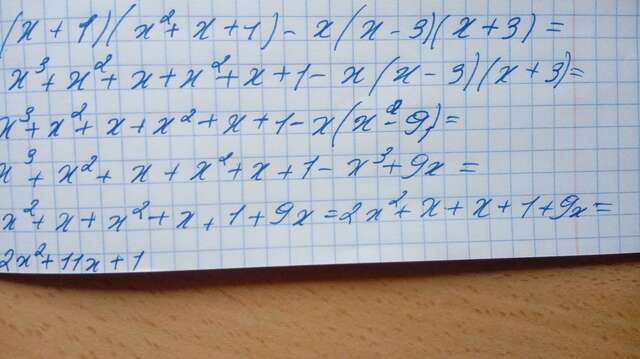 (x+1)(x²+x+1)-x(x-3)(x+3)=
x³+x²+x+x²+x+1-x(x-3)(x+3)=
x³+x²+x+x²+x+1-x(x²-9)=
x³+x²+x+x²+x+1-x³+9x=
x²+x+x²+x+1+9x=2x²+x+x+1+9x=
2x²+11x+1